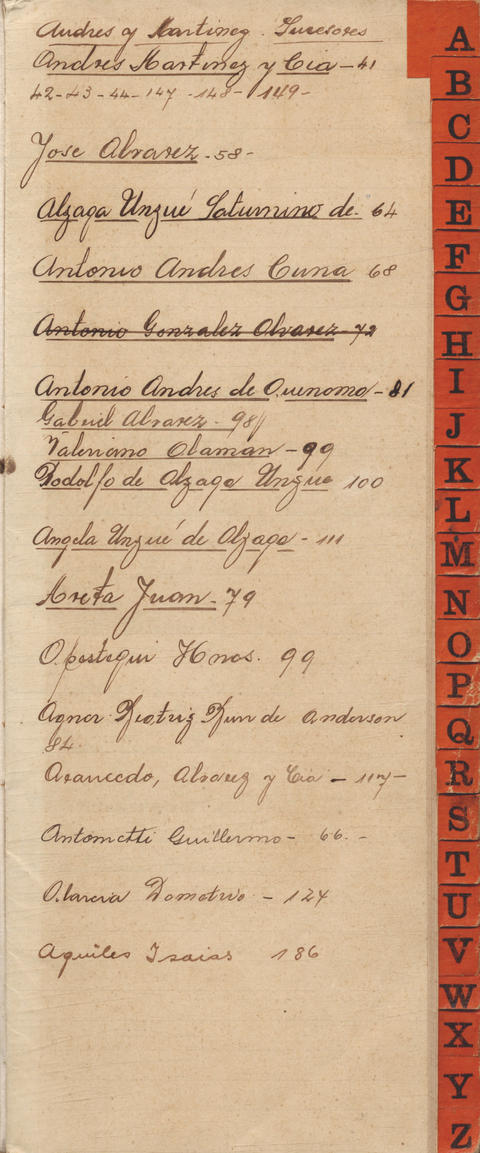 Andres y Martinez. Sucesores
Andres Martinez y Cia - 41
42 - 43 - 44 - 147 - 148 - 149 -
Jose Alvarez - 58 -
Alzaga Unzué Saturnino de. 64
Antonio Andres Cuna 68
Antonio Gonzalez Alvarez - 72
Antonio Andres de - 81
Gabriel Alvarez - 98
Valeriano Alaman - 99
Rodolfo de Alzaga Unzue 100
Angela Unzué de Alzaga - 111
Areta Juan - 79
Apestegui Hnos. 99
Agnor Beatriz de Anderson
84.
Alvarez y Cia - 117 -
Guillermo - 66. -
- 124
Aquiles Isaias 186
A
B
C
D
E
F
G
H
I
J
K
L
M
N
O
P
Q
R
S
T
U
V
W
X
Y
Z